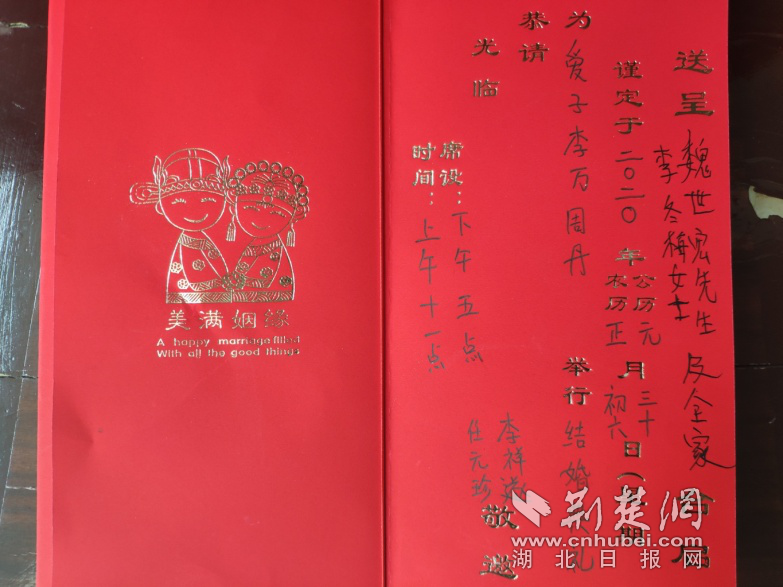 美满姻缘
A happy marriage filled
With all the good things
送呈 魏世宏先生 及全家
李冬梅女士
谨定于二〇二〇年 公历元月三十日(星期
农历正 初六
为爱子李万周丹举行结婚典礼
恭请
光临
席设:下午五点
时间:上午十一点
李祥
任元珍
敬邀
荆楚网
www.cnhubei.com
湖北日报网